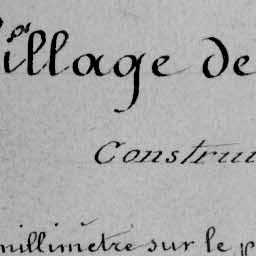 Village de
Construi
millimètre sur le p